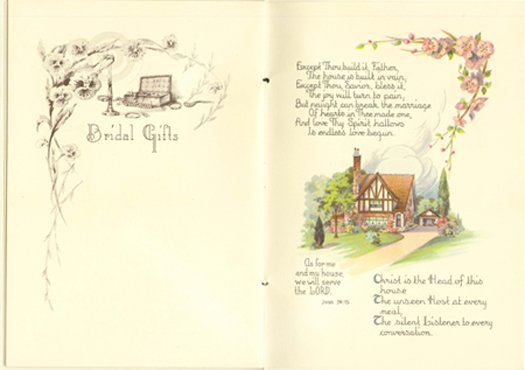 Bridal Gifts
Except Thou build it, Father,
The house is built in vain;
Except Thou, Savior, bless it,
The joy will turn to pain,
But naught can break the marriage
Of hearts in Thee made one,
And love Thy Spirit hallows
Is endless love begun.
As for me
and my house,
we will serve
the LORD.
Josh. 24:15
Christ is the Head of this
house
The unseen Host at every
meal,
The silent Listener to every
conversation.